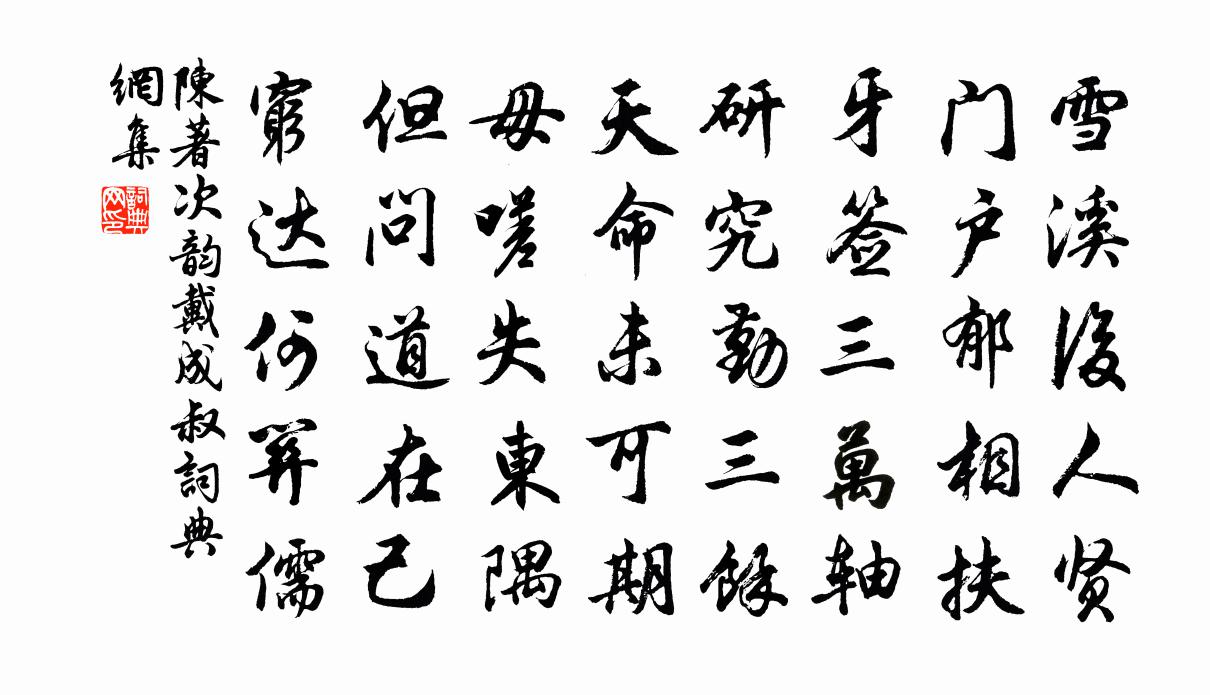 雪溪後人贤
门户郁相扶
牙签三萬轴
研究勤三馀
天命未可期
毋嗟失東隅
但问道在己
窮达何算儒
陳著次韵戴成叔詞典
網集
詞典
网印